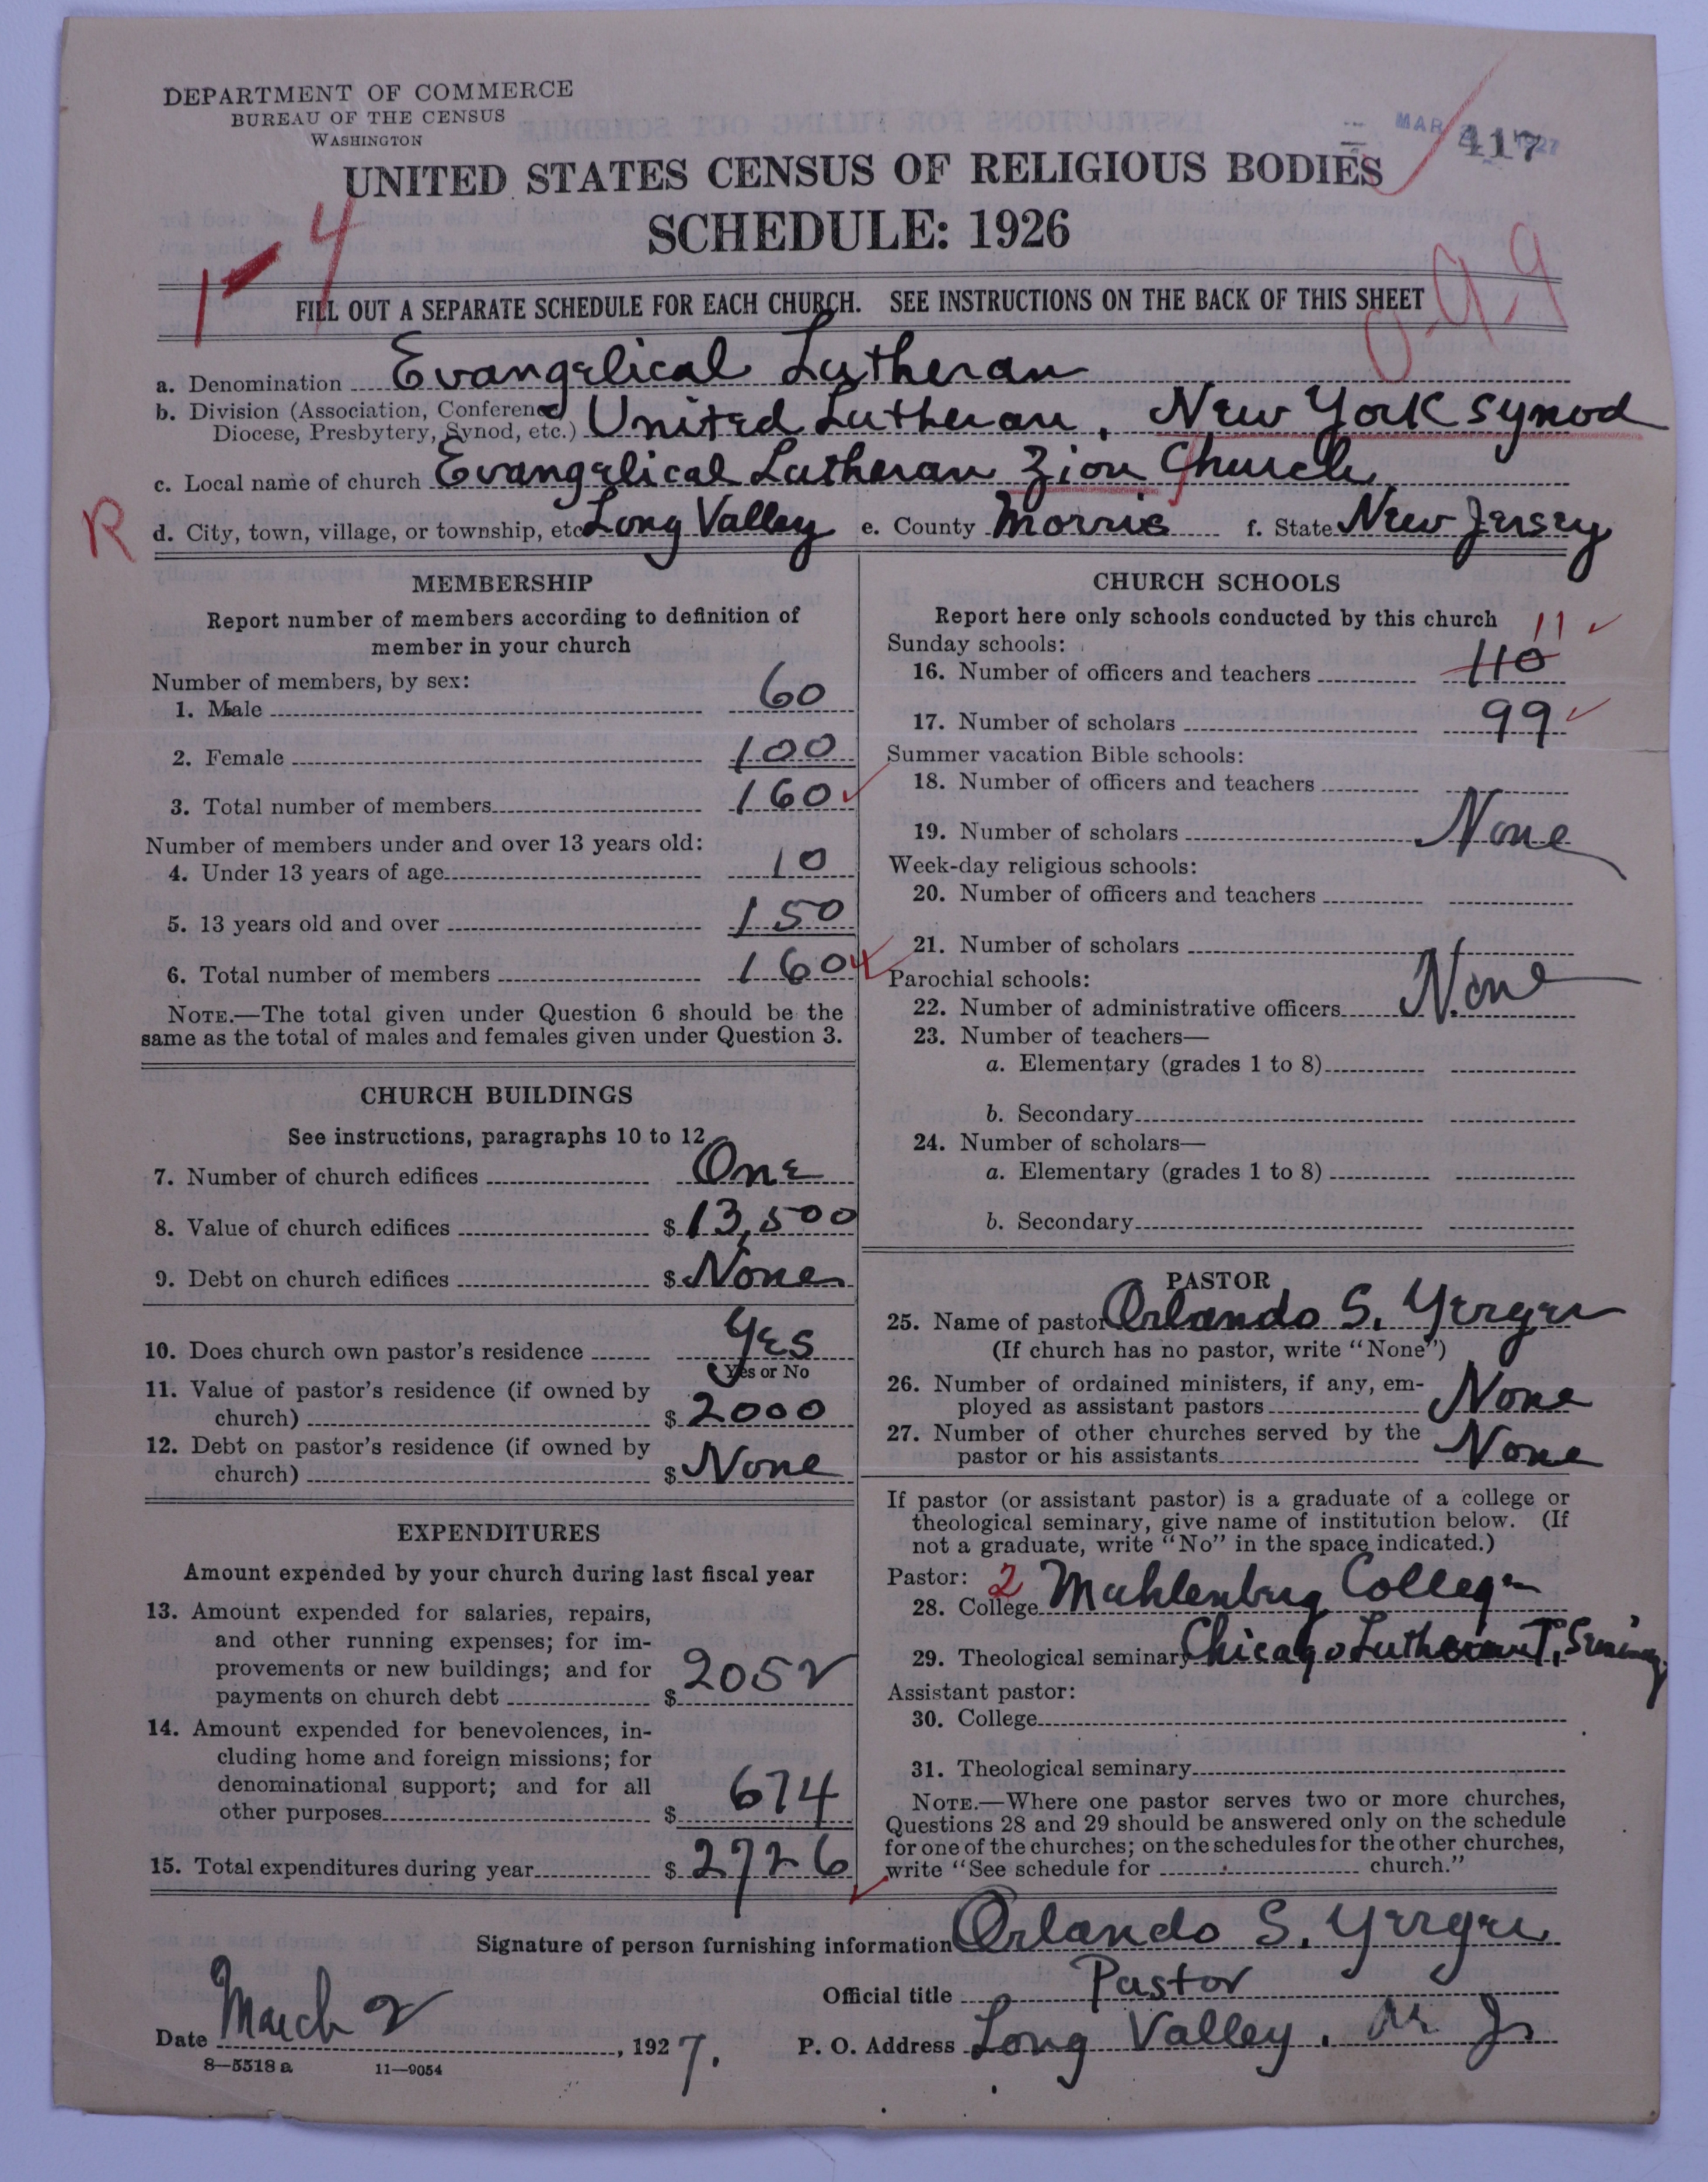 DEPARTMENT OF COMMERCE
BUREAU OF THE CENSUS
WASHINGTON
MAR 1927
417
UNITED STATES CENSUS OF RELIGIOUS BODIES
SCHEDULE: 1926
1-4
0-9-9
FILL OUT A SEPARATE SCHEDULE FOR EACH CHURCH. SEE INSTRUCTIONS ON THE BACK OF THIS SHEET
a. Denomination Evangelical Lutheran
b. Division (Association, Conference, Diocese, Presbytery, Synod, etc.) United Lutheran, New York Synod
c. Local name of church Evangelical Lutheran Zion Church
R
d. City, town, village, or township, etc. Long Valley e. County Morris f. State New Jersey
MEMBERSHIP
Report number of members according to definition of
member in your church
Number of members, by sex:
1. Male 60
2. Female 100
3. Total number of members 160
Number of members under and over 13 years old:
4. Under 13 years of age 10
5. 13 years old and over 150
6. Total number of members 160
NOTE.—The total given under Question 6 should be the
same as the total of males and females given under Question 3.
CHURCH BUILDINGS
See instructions, paragraphs 10 to 12
7. Number of church edifices One
8. Value of church edifices $ 13,500
9. Debt on church edifices $ None
10. Does church own pastor's residence Yes
Yes or No
11. Value of pastor's residence (if owned by
church) $ 2000
12. Debt on pastor's residence (if owned by
church) $ None
EXPENDITURES
Amount expended by your church during last fiscal year
13. Amount expended for salaries, repairs,
and other running expenses; for im-
provements or new buildings; and for
payments on church debt $ 2052
14. Amount expended for benevolences, in-
cluding home and foreign missions; for
denominational support; and for all
other purposes $ 674
15. Total expenditures during year $ 2726
CHURCH SCHOOLS
Report here only schools conducted by this church
Sunday schools: 11
16. Number of officers and teachers 110
17. Number of scholars 99
Summer vacation Bible schools:
18. Number of officers and teachers
19. Number of scholars None
Week-day religious schools:
20. Number of officers and teachers
21. Number of scholars
Parochial schools:
22. Number of administrative officers None
23. Number of teachers—
a. Elementary (grades 1 to 8)
b. Secondary
24. Number of scholars—
a. Elementary (grades 1 to 8)
b. Secondary
PASTOR
25. Name of pastor Orlando S. Yerger
(If church has no pastor, write "None")
26. Number of ordained ministers, if any, em-
ployed as assistant pastors None
27. Number of other churches served by the
pastor or his assistants None
If pastor (or assistant pastor) is a graduate of a college or
theological seminary, give name of institution below. (If
not a graduate, write "No" in the space indicated.)
Pastor: 2
28. College Muhlenberg College
29. Theological seminary Chicago Lutheran T. Seminary
Assistant pastor:
30. College
31. Theological seminary
NOTE.—Where one pastor serves two or more churches,
Questions 28 and 29 should be answered only on the schedule
for one of the churches; on the schedules for the other churches,
write "See schedule for church."
Signature of person furnishing information Orlando S. Yerger
Official title Pastor
Date March 2, 1927. P. O. Address Long Valley, N. J.
8—5518 a 11—9054